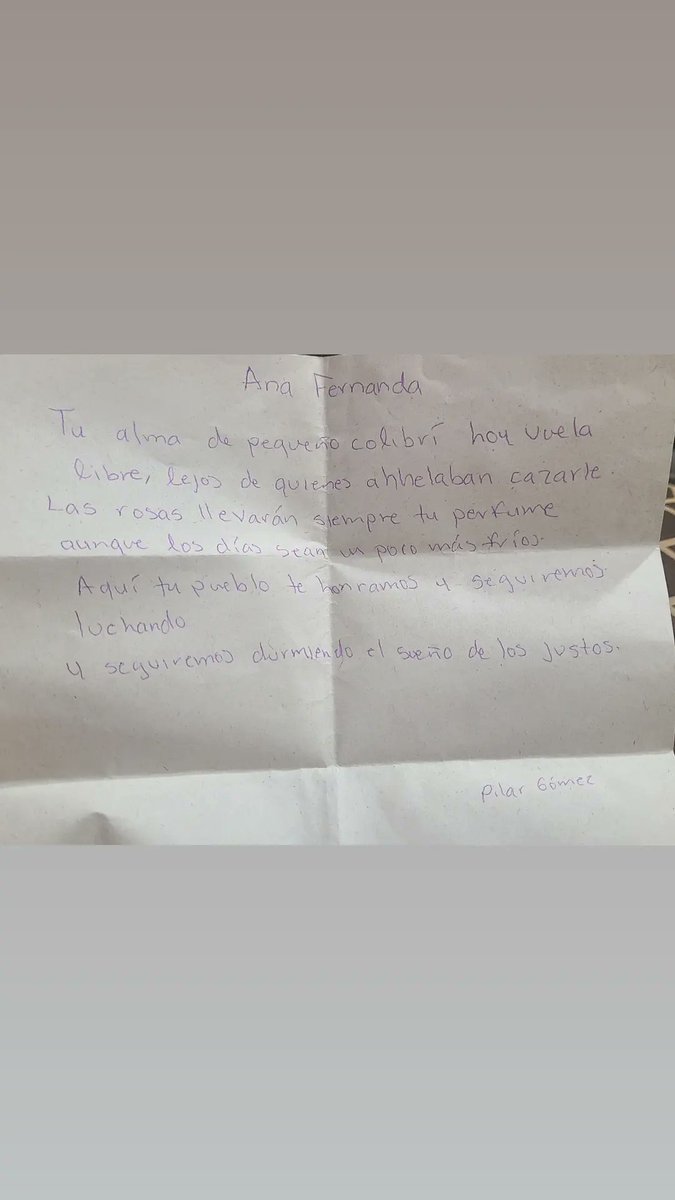 Ana Fernanda
Tu alma de pequeño colibrí hoy vuela
libre, lejos de quienes ahhelaban cazarle.
Las rosas llevarán siempre tu perfume
aunque los días sean un poco más fríos.
Aquí tu pueblo te honramos y seguiremos
luchando
y seguiremos durmiendo el sueño de los justos.
Pilar Gómez